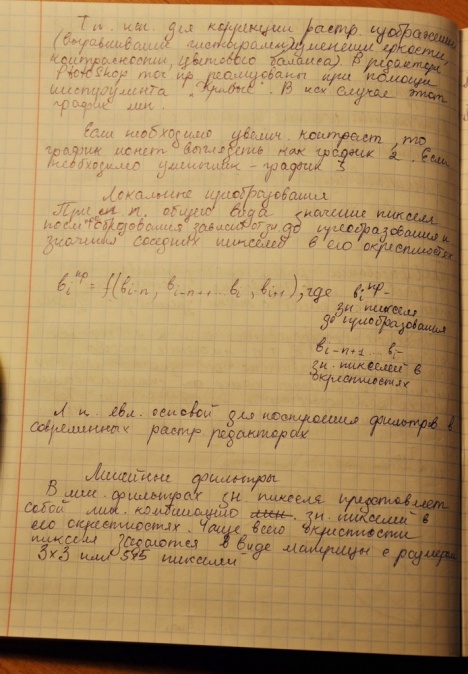 Т п. исп. для коррекции растр. изображений
(выравнивание гистограмм, изменении яркости,
контрастности, цветового баланса). В редакторе
Photoshop точ пр. реализованы при помощи
инструмента "Кривые". В исх случае этот
график лин.
Если необходимо увелич. контраст, то
график может выглядеть как график 2. Если
необходимо уменьшить - график 3
Локальные преобразования
При п. общего вида значение пикселя
после образования зависит от зн до преобразования и
значения соседних пикселей в его окрестностях
bᵢ ᵖᵖ = f(bᵢ₋ₙ, bᵢ₋ₙ₊₁...bᵢ, bᵢ₊₁), где bᵢ ᵖᵖ -
зн. пикселя
до преобразования
bᵢ₋ₙ₊₁ bᵢ-
зн. пикселей в
окрестностях
Л п. явл. основой для построения фильтров в
современных растр. редакторах
Линейные фильтры
В лин. фильтрах зн пикселя представляет
собой лин. комбинацию зн. пикселей в
его окрестностях. Чаще всего окрестности
пикселя задаются в виде матрицы с размером
3х3 или 5х5 пикселей